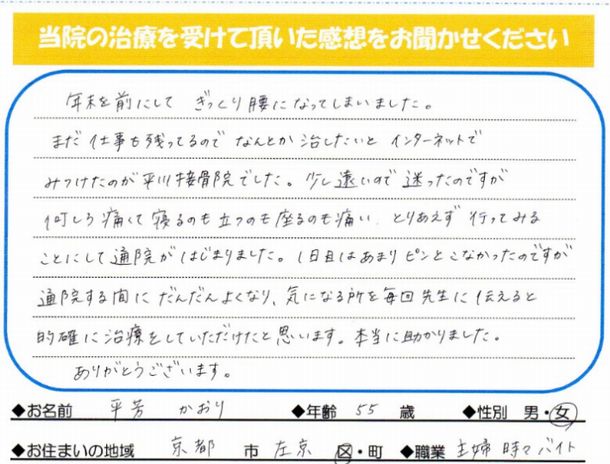 当院の治療を受けて頂いた感想をお聞かせください
年末を前にして ぎっくり腰になってしまいました。
まだ仕事も残ってるので なんとか治したいと インターネットで
みつけたのが平川接骨院でした。少し遠いので迷ったのですが
何しろ痛くて寝るのも立つのも座るのも痛い、とりあえず行ってみる
ことにして通院がはじまりました。1日目はあまりピンとこなかったのですが
通院する間にだんだんよくなり、気になる所を毎回先生に伝えると
的確に治療をしていただけたと思います。本当に助かりました。
ありがとうございます。
◆お名前 平芳 かおり ◆年齢 55 歳 ◆性別 男・女
◆お住まいの地域 京都 市 左京 区・町 ◆職業 主婦 時々バイト